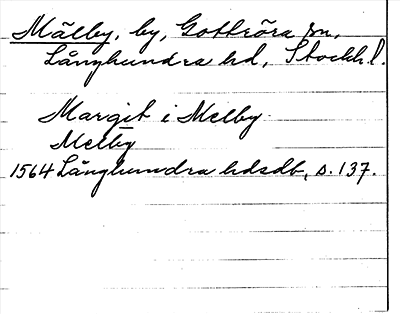 Mälby, by, Gottröra sn,
Långhundra hd, Stockh. l.
Margit i Melby
Melby
1564 Långhundra hdsdb, s. 137.